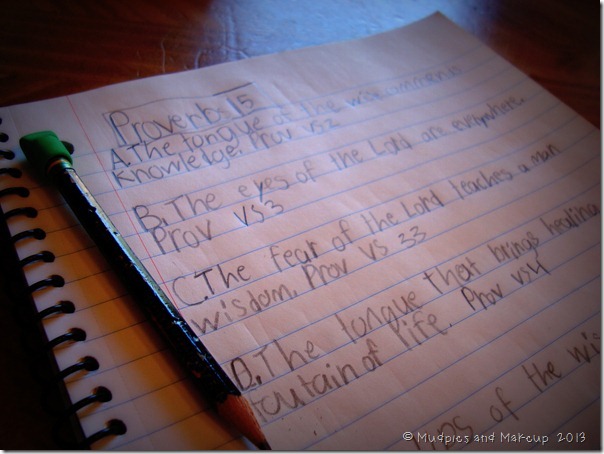 Proverbs 15
A. The tongue of the wise commends
Knowledge. Prov vs2
B. The eyes of the Lord are everywhere.
Prov vs3
C. The fear of the Lord teaches a man
wisdom. Prov vs 33
D. The tongue that brings healing
fountain of life. Prov vs4
of the wis
© Mudpies and Makeup 2013